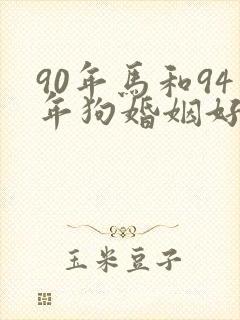 90年馬和94
年狗婚姻好
玉米豆子